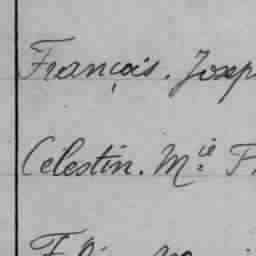 François. Josep
Celestin. M.ie F